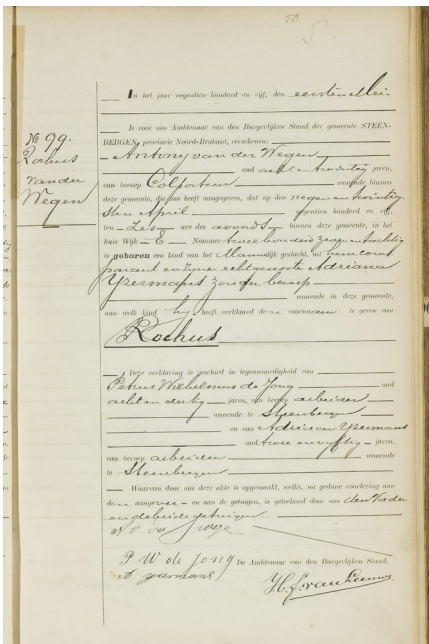 50
In het jaar negentien honderd en vijf, den eersten Mei
Is voor ons Ambtenaar van den Burgerlijken Stand der gemeente STEEN-
BERGEN, provincie Noord-Brabant, verschenen:
No 99.
Rochus
van der
Wegen
Antony van der Wegen
oud acht en twintig jaren,
van beroep Colporteur wonende binnen
deze gemeente, die ons heeft aangegeven, dat op den negen en twintig
sten April negentien honderd en vijf
ten zes ure des avonds binnen deze gemeente, in het
huis Wijk E Nummer twee honderd zeven en tachtig
is geboren een kind van het Mannelijk geslacht, uit hem com
parant en zijne echtgenoote Adriana
Yzermans zonder beroep
wonende in deze gemeente,
aan welk kind hij heeft verklaard den voornaam te geven van
Rochus
Deze verklaring is geschied in tegenwoordigheid van
Petrus Wilhelmus de Jong oud
acht en dertig jaren, van beroep arbeider
wonende te Steenbergen
en van Adriaan Yzermans
oud twee en vijftig jaren,
van beroep arbeider wonende
te Steenbergen
Waarvan door ons deze akte is opgemaakt, welke, na gedane voorlezing aan
den aangever en aan de getuigen, is geteekend door ons den Vader
en de beide getuigen.
P W de Jong
De Ambtenaar van den Burgerlijken Stand,
A yzermans